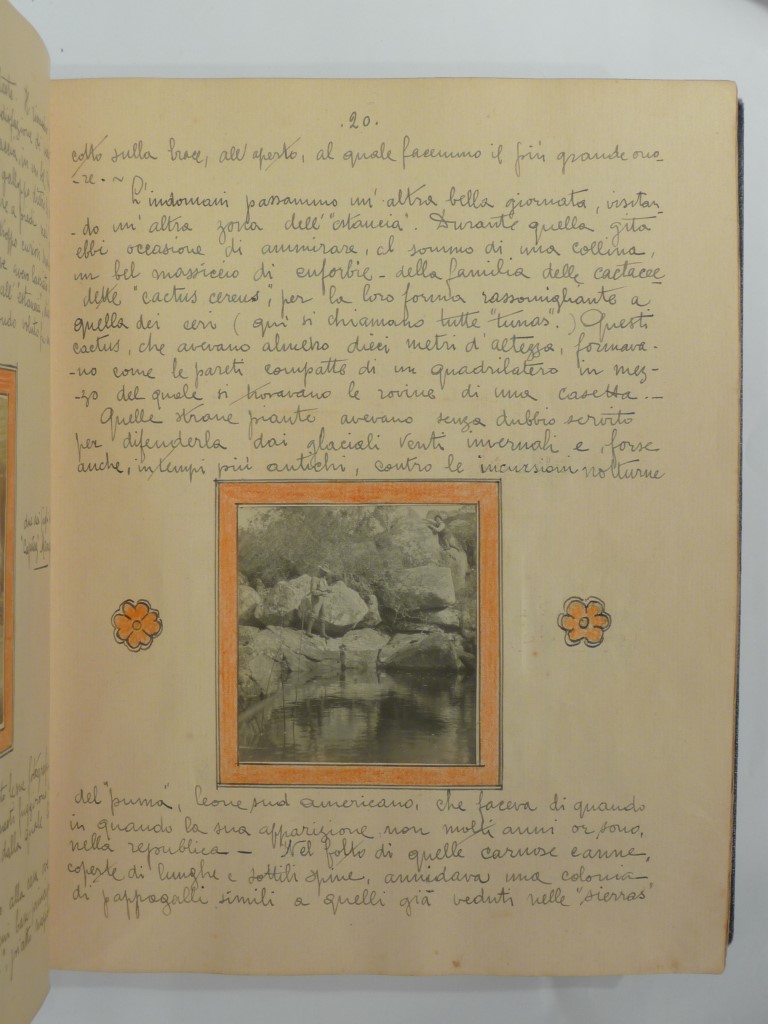 .20.
cotto sulla brace, all'aperto, al quale facemmo il più grande ono-
-re. - ~
L'indomani passammo un'altra bella giornata, visitan-
-do un'altra zona dell'"estancia". Durante quella gita
ebbi occasione di ammirare, al sommo di una collina,
un bel massiccio di euforbie - della familia delle cactacee
dette "cactus cereus", per la loro forma rassomigliante a
quella dei ceri ( qui si chiamano tutte "tunas".) Questi
cactus, che avevano almeno dieci metri d'altezza, formava-
-no come le pareti compatte di un quadrilatero in mez-
-zo del quale si trovavano le rovine di una casetta. -
Quelle strane piante avevano senza dubbio servito
per difenderla dai glaciali venti invernali e, forse
anche, in tempi più antichi, contro le incursioni notturne
del "puma", leone sud americano, che faceva di quando
in quando la sua apparizione non molti anni or sono,
nella republica - Nel folto di quelle carnose canne,
coperte di lunghe e sottili spine, annidava una colonia
di pappagalli simili a quelli già veduti nelle "sierras"